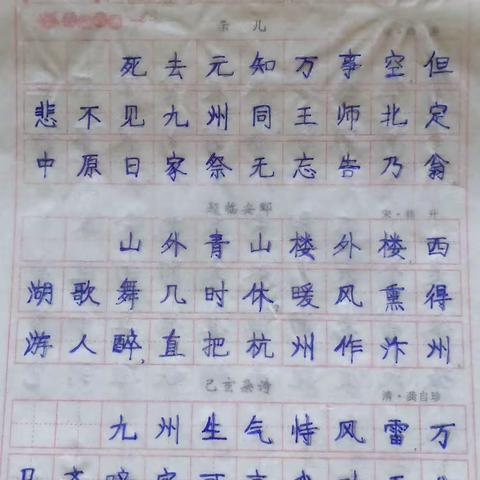 示儿
死去元知万事空但
悲不见九州同王师北定
中原日家祭无忘告乃翁
题临安邸
宋·林升
山外青山楼外楼,西
湖歌舞几时休,暖风熏得
游人醉,直把杭州作汴州.
己亥杂诗
清·龚自珍
九州生气恃风雷万